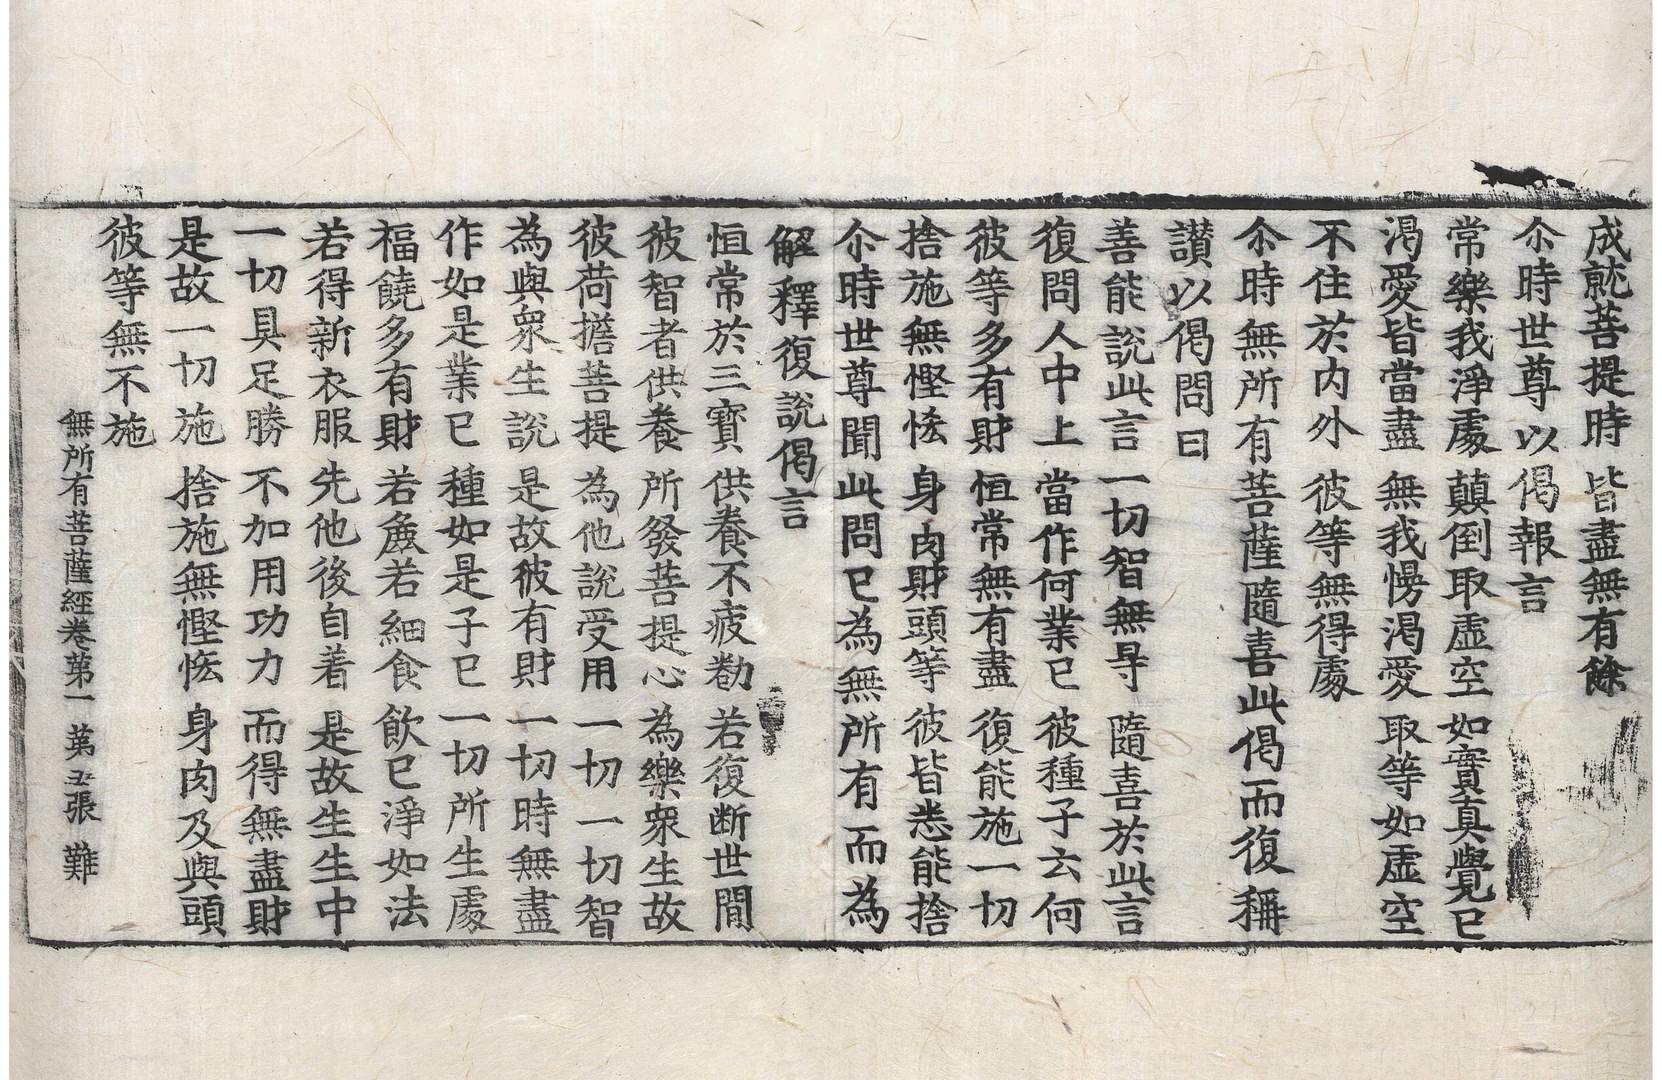 成就菩提時　皆盡無有餘
尒時世尊以偈報言
常樂我淨處　顛倒取虛空　如實真覺已
渴愛皆當盡　無我㥬渴愛　取等如虛空
不住於內外　彼等無得處
尒時無所有菩薩隨喜此偈而復稱
讃以偈問曰
善能說此言　一切智無㝵　隨喜於此言
復問人中上　當作何業已　彼種子云何
彼等多有財　恒常無有盡　復能施一切
捨施無慳恡　身肉財頭等　彼皆悉能捨
尒時世尊聞此問已為無所有而為
解釋復說偈言
恒常於三寶　供養不疲勌　若復断世間
彼智者供養　所發菩提心　為樂衆生故
彼荷擔菩提　為他說受用　一切一切智
為與衆生說　是故彼有財　一切時無盡
作如是業已　種如是子已　一切所生處
福饒多有財　若麁若細食　飲已淨如法
若得新衣服　先他後自著　是故生生中
一切具足勝　不加用功力　而得無盡財
是故一切施　捨施無慳恡　身肉及與頭
彼等無不施
無所有菩薩經卷第一　第五張　難